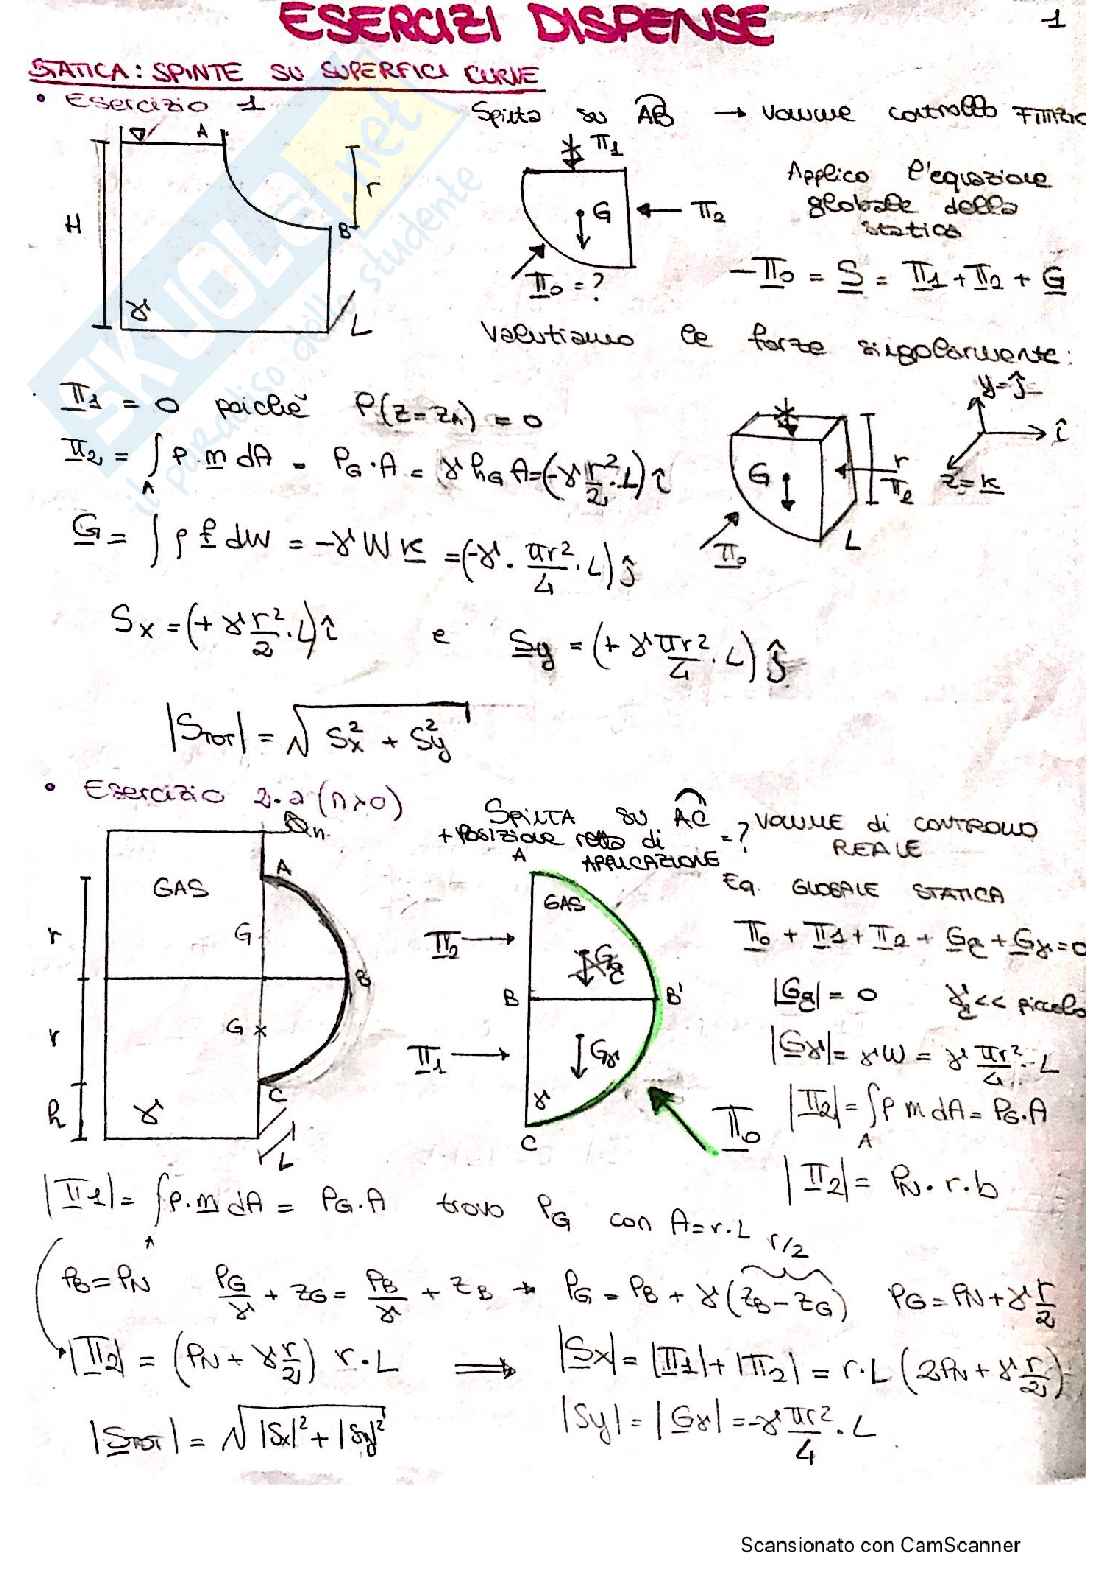 ESERCIZI DISPENSE
1
STATICA: SPINTE SU SUPERFICI CURVE
• Esercizio 1
Spinta su AB → volume controllo FITTIZIO
A
r
H
B
γ
L
Π1
G
Π2
Π0 = ?
Applico l'equazione
globale della
statica
-Π0 = S = Π1 + Π2 + G
Valutiamo le forze singolarmente:
Π1 = 0 poiché P(z=zA) = 0
Π2 = ∫A P·n dA = PG·A = γ hG A = (-γ r²/2 · L) î
G = ∫ ρ f dW = -γ W k = (-γ · πr²/4 · L) ĵ
y=ĵ
î
z=k
G
r
Π2
Π0
L
Sx = (+ γ r²/2 · L) î e Sy = (+ γ πr²/4 · L) ĵ
|STOT| = √(Sx² + Sy²)
• Esercizio 2.a (n>0)
SPINTA SU AC = ? VOLUME di CONTROLLO
+ POSIZIONE retta di REALE
APPLICAZIONE
n
A
GAS
r
G
B
r
G
C
h
γ
L
A
GAS
Π2
B
B'
Π1
Gγ
γ
C
Π0
Eq. GLOBALE STATICA
Π0 + Π1 + Π2 + Gg + Gγ = 0
|Gg| = 0 γg << piccolo
|Gγ| = γW = γ πr²/4 · L
|Π2| = ∫A P n dA = PG·A
|Π2| = PN · r · b
|Π1| = ∫A P·n dA = PG·A trovo PG con A = r·L
r/2
PB = PN PG/γ + zG = PB/γ + zB → PG = PB + γ(zB - zG) PG = PN + γ r/2
|Π2| = (PN + γ r/2) r·L ⟹ |Sx| = |Π1| + |Π2| = r·L (2PN + γ r/2)
|STOT| = √(|Sx|² + |Sy|²) |Sy| = |Gγ| = -γ πr²/4 · L
Scansionato con CamScanner
SKUOLA.net
il paradiso dello studente